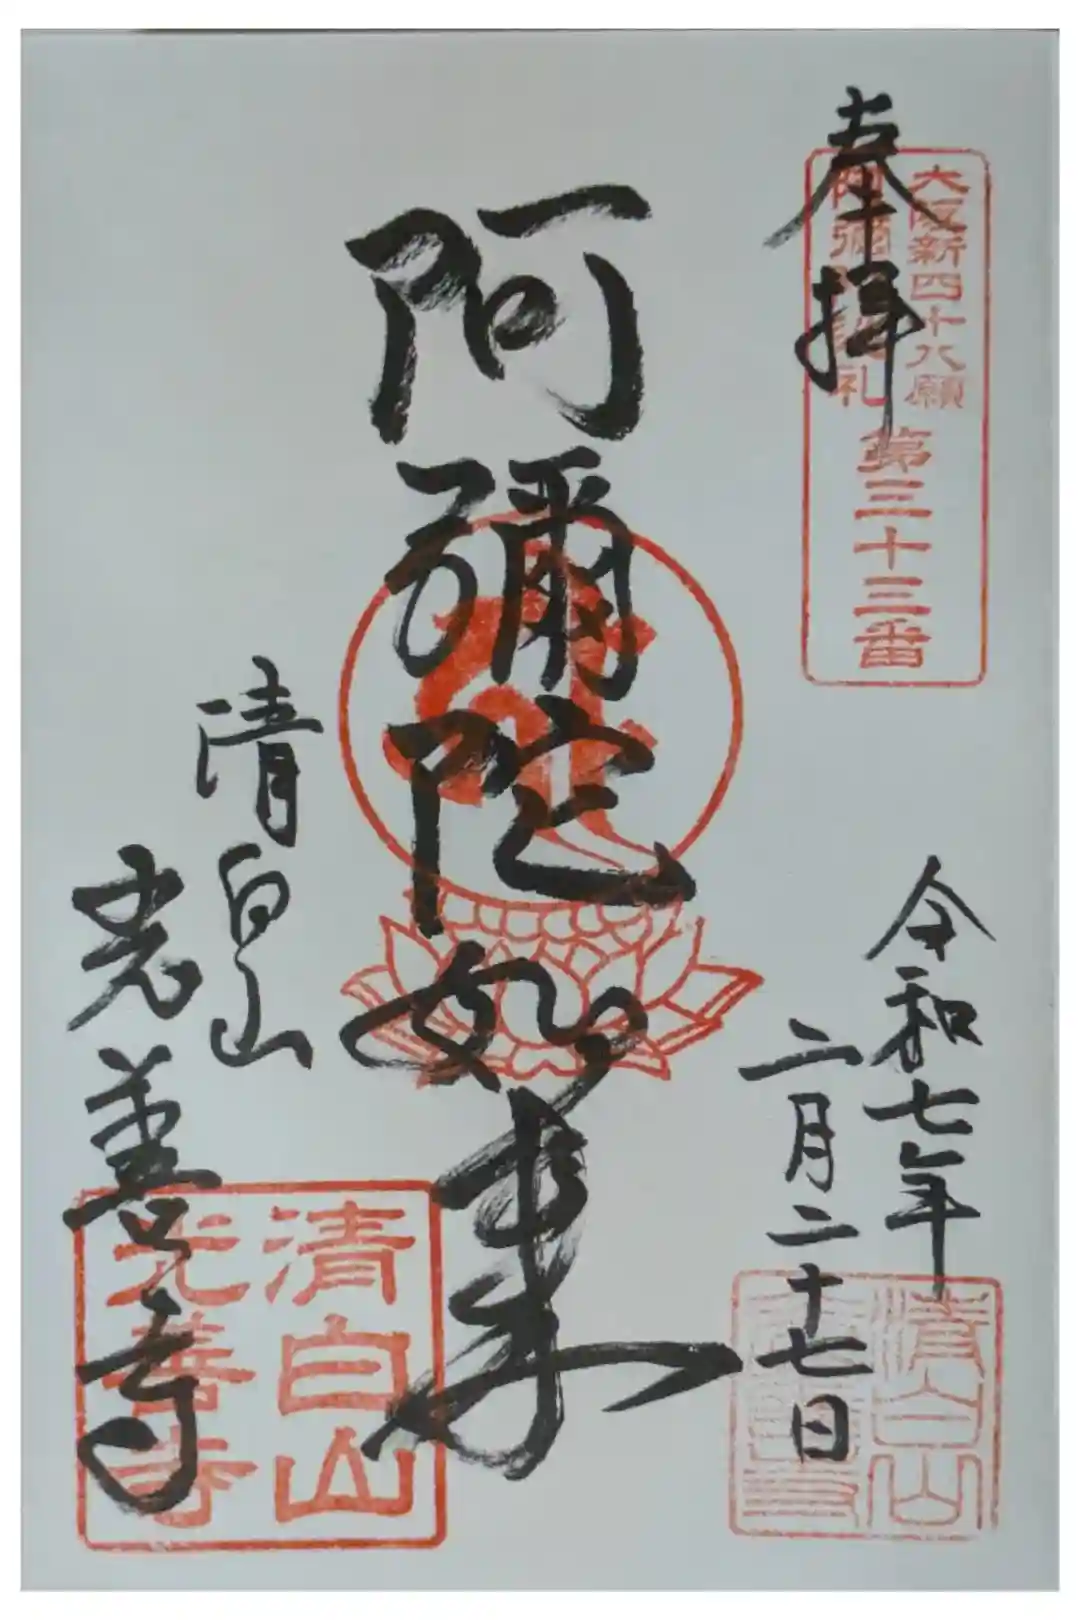 奉拝
大阪新四十八願
阿彌陀巡礼
第三十三番
令和七年
二月二十七日
阿彌陀如来
清白山
光善寺
清白山
光善寺
清白山